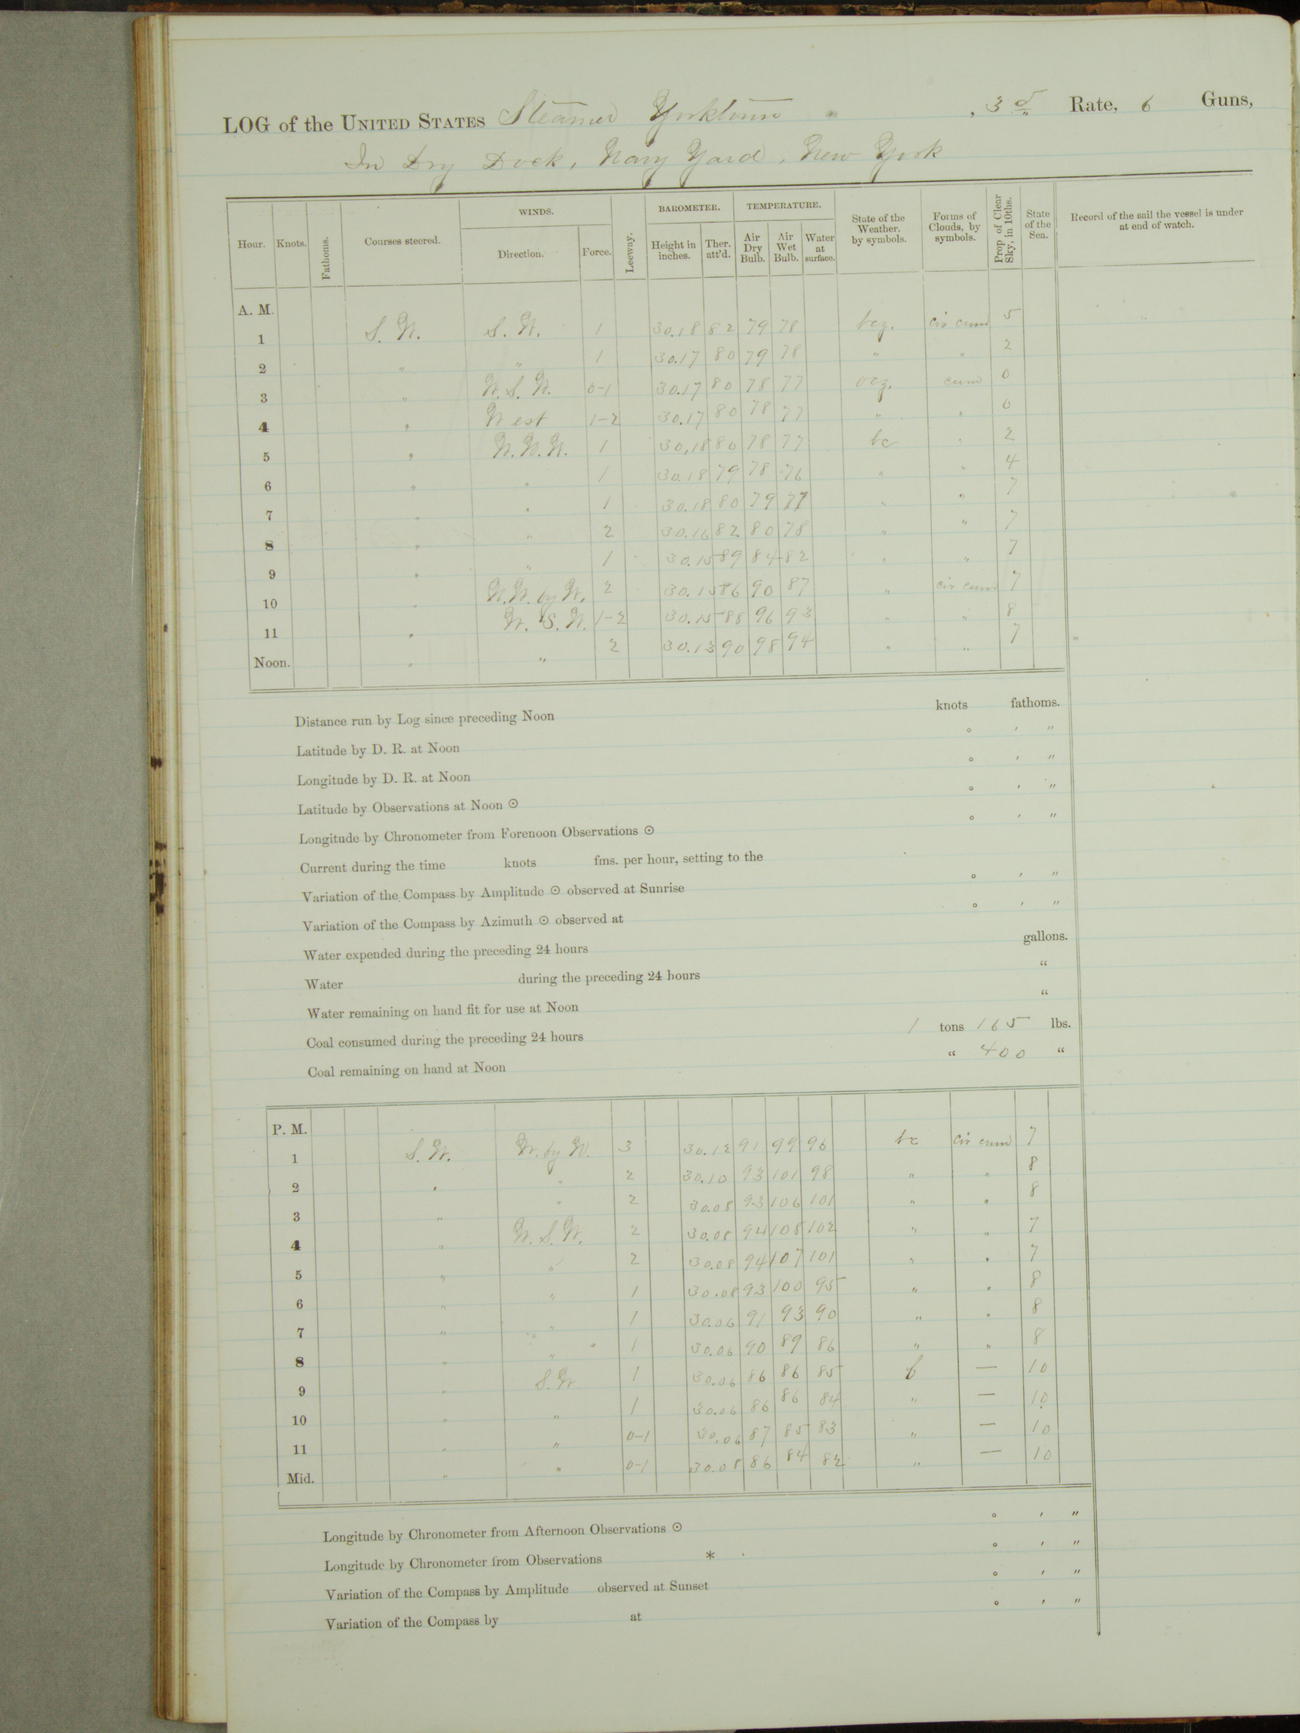 LOG of the UNITED STATES Steamer Yorktown , 3d Rate, 6 Guns,
In Dry Dock, Navy Yard, New York
Hour. Knots. Fathoms. Courses steered. WINDS. Direction. Force. Leeway. BAROMETER. Height in inches. Ther. att'd. TEMPERATURE. Air Dry Bulb. Air Wet Bulb. Water at surface. State of the Weather, by symbols. Forms of Clouds, by symbols. Prop. of Clear Sky, in 10ths. State of the Sea. Record of the sail the vessel is under at end of watch.
A. M.
1 S. W. S. W. 1 30.18 82 79 78 bcz. cir cum 5
2 " " 1 30.17 80 79 78 " " 2
3 " W. S. W. 0-1 30.17 80 78 77 ocz. cum 0
4 " West 1-2 30.17 80 78 77 " " 0
5 " W. N. W. 1 30.18 80 78 77 bc " 2
6 " " 1 30.18 79 78 76 " " 4
7 " " 1 30.18 80 79 77 " " 7
8 " " 2 30.16 82 80 78 " " 7
9 " " 1 30.15 89 84 82 " " 7
10 " N.W. by W. 2 30.15 86 90 87 " cir cum 7
11 " W. S. W. 1-2 30.15 88 96 93 " " 8
Noon. " " 2 30.13 90 98 94 " " 7
Distance run by Log since preceding Noon knots fathoms.
Latitude by D. R. at Noon ° ′ ″
Longitude by D. R. at Noon ° ′ ″
Latitude by Observations at Noon ⊙ ° ′ ″
Longitude by Chronometer from Forenoon Observations ⊙ ° ′ ″
Current during the time knots fms. per hour, setting to the
Variation of the Compass by Amplitude ⊙ observed at Sunrise ° ′ ″
Variation of the Compass by Azimuth ⊙ observed at ° ′ ″
Water expended during the preceding 24 hours gallons.
Water during the preceding 24 hours "
Water remaining on hand fit for use at Noon "
Coal consumed during the preceding 24 hours 1 tons 165 lbs.
Coal remaining on hand at Noon " 400 "
P. M.
1 S. W. W. by N. 3 30.12 91 99 96 bc cir cum 7
2 " " 2 30.10 93 101 98 " " 8
3 " " 2 30.08 93 106 101 " " 8
4 " W. S. W. 2 30.08 94 108 102 " " 7
5 " " 2 30.08 94 107 101 " " 7
6 " " 1 30.08 93 100 95 " " 8
7 " " 1 30.06 91 93 90 " " 8
8 " " 1 30.06 90 89 86 " " 8
9 " S. W 1 30.06 86 86 85 b — 10
10 " " 1 30.06 86 86 84 " — 10
11 " " 0-1 30.06 87 85 83 " — 10
Mid. " " 0-1 30.08 86 84 82 " — 10
Longitude by Chronometer from Afternoon Observations ⊙ ° ′ ″
Longitude by Chronometer from Observations * ° ′ ″
Variation of the Compass by Amplitude observed at Sunset ° ′ ″
Variation of the Compass by at ° ′ ″